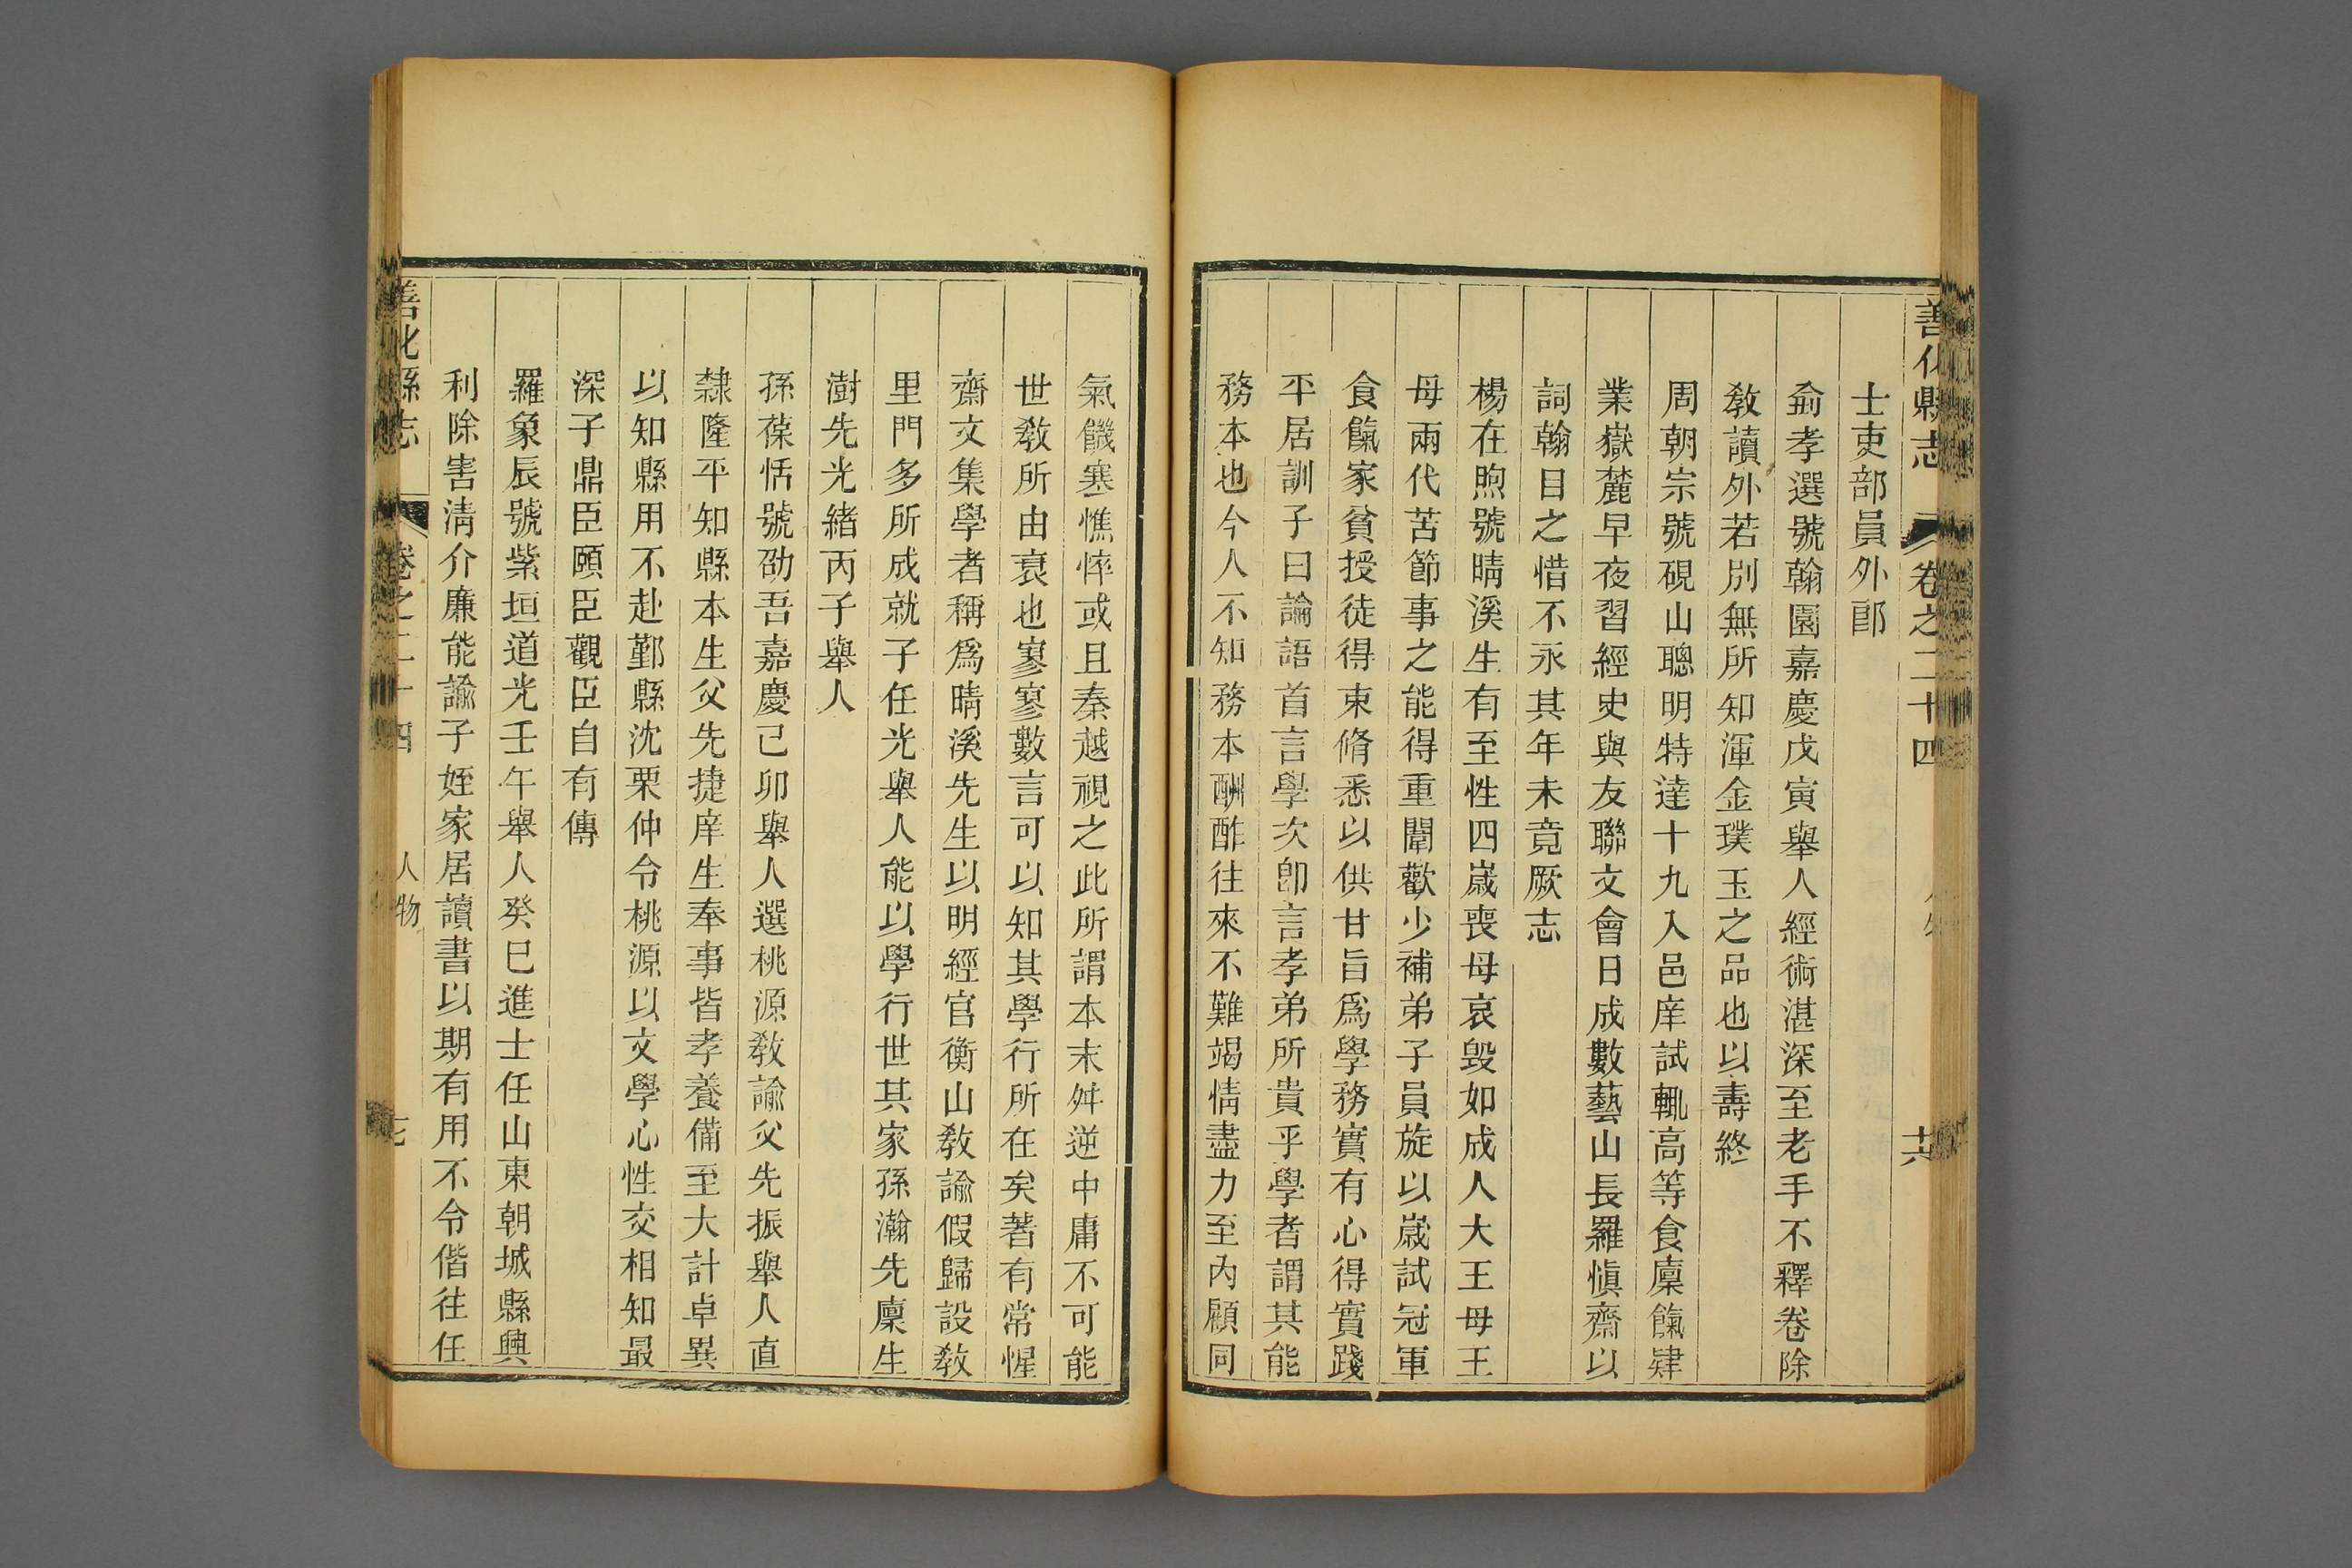 善化縣志 卷之二十四 人物 十六
士吏部員外郎
俞孝選號翰園嘉慶戊寅舉人經術湛深至老手不釋卷除
敎讀外若別無所知渾金璞玉之品也以壽終
周朝宗號硯山聰明特達十九入邑庠試輒高等食廩餼肄
業嶽麓早夜習經史與友聯文會日成數藝山長羅愼齋以
詞翰目之惜不永其年未竟厥志
楊在煦號晴溪生有至性四歲喪母哀毀如成人大王母王
母兩代苦節事之能得重闈歡少補弟子員旋以歲試冠軍
食餼家貧授徒得束脩悉以供甘旨爲學務實有心得實踐
平居訓子曰論語首言學次卽言孝弟所貴乎學者謂其能
務本也今人不知務本酬酢往來不難竭情盡力至內顧同
氣饑寒憔悴或且秦越視之此所謂本末舛逆中庸不可能
世敎所由衰也寥寥數言可以知其學行所在矣著有常惺
齋文集學者稱爲晴溪先生以明經官衡山敎諭假歸設敎
里門多所成就子任光舉人能以學行世其家孫瀚先廩生
澍先光緖丙子舉人
孫葆恬號劭吾嘉慶己卯舉人選桃源敎諭父先振舉人直
隸隆平知縣本生父先捷庠生奉事皆孝養備至大計卓異
以知縣用不赴鄞縣沈栗仲令桃源以文學心性交相知最
深子鼎臣頤臣觀臣自有傳
羅象辰號紫垣道光壬午舉人癸巳進士任山東朝城縣興
利除害淸介廉能諭子姪家居讀書以期有用不令偕往任
善化縣志 卷之二十四 人物 七